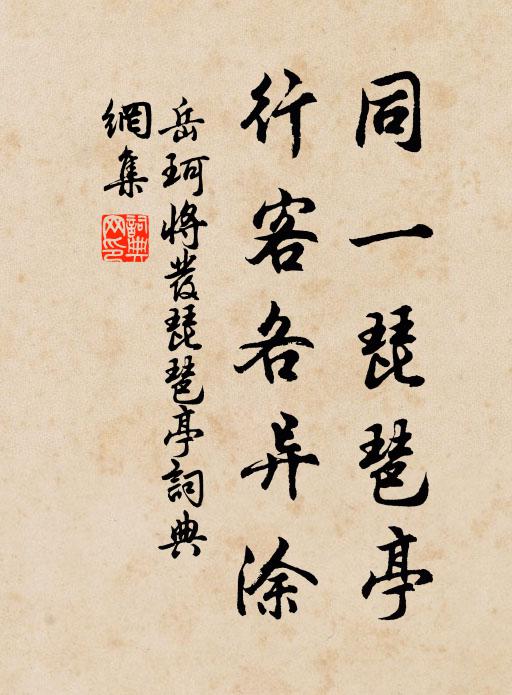 同一琵琶亭
行客各异涂
岳珂将发琵琶亭詞典
網集
詞典网印